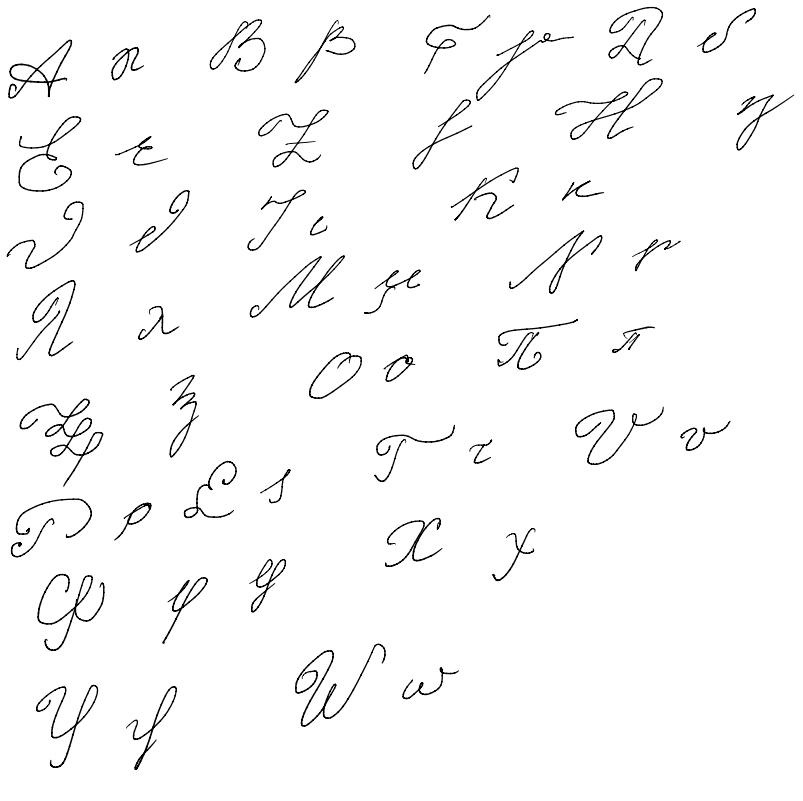 Α α Β β Γ γ Δ δ
Ε ε Ζ ζ Η η
Θ θ Ι ι Κ κ
Λ λ Μ μ Ν ν
Ξ ξ Ο ο Π π
Ρ ρ Σ ς Τ τ Υ υ
Φ φ φ Χ χ
Ψ ψ Ω ω